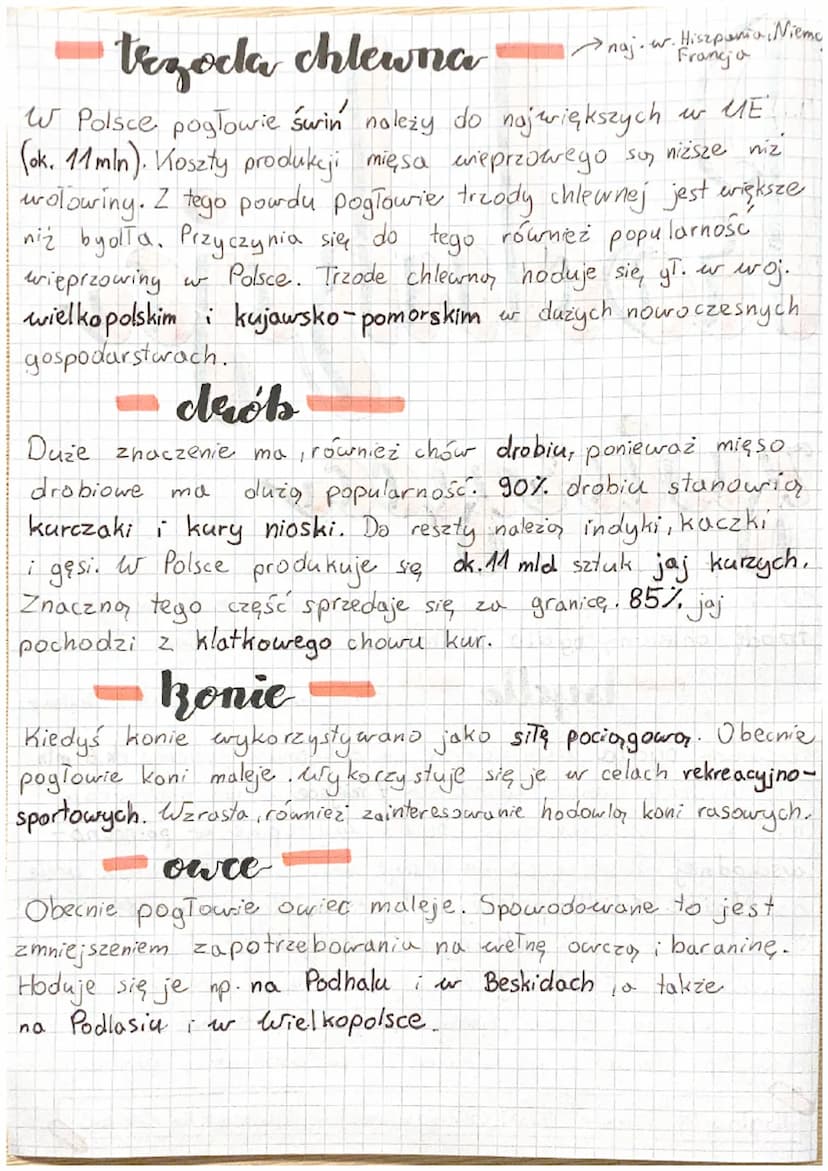 trzoda chlewna → naj. w. Hiszpania, Niemc
Francja
W Polsce pogłowie świń należy do największych w UE
(ok. 11 mln). Koszty produkcji mięsa wieprzowego są niższe niż
wołowiny. Z tego powdu pogłowie trzody chlewnej jest większe
niż bydłta. Przyczynia się do tego również popularność
wieprzowiny w Polsce. Trzode chlewną hoduje się gł. w woj.
wielkopolskim i kujawsko-pomorskim w dużych nowoczesnych
gospodarstwach.
drób
Duże znaczenie ma również chów drobiu, ponieważ mięso
drobiowe ma dużą popularność. 90% drobiu stanowią
kurczaki i kury nioski. Do reszty należą indyki, kaczki
i gęsi. W Polsce produkuje się ok. 11 mld sztuk jaj kurzych.
Znaczną tego część sprzedaje się za granicę. 85% jaj
pochodzi z klatkowego chowu kur.
konie
Kiedyś konie wykorzystywano jako siłę pociągową. Obecnie
pogłowie koni maleje. Wykorzystuje się je w celach rekreacyjno-
sportowych. Wzrasta również zainteresowanie hodowlą koni rasowych.
owce
Obecnie pogłowie owiec maleje. Spowodowane to jest
zmniejszeniem zapotrzebowania na wełnę owczą i baraninę.
Hoduje się je np. na Podhalu i w Beskidach, a także
na Podlasiu i w Wielkopolsce.